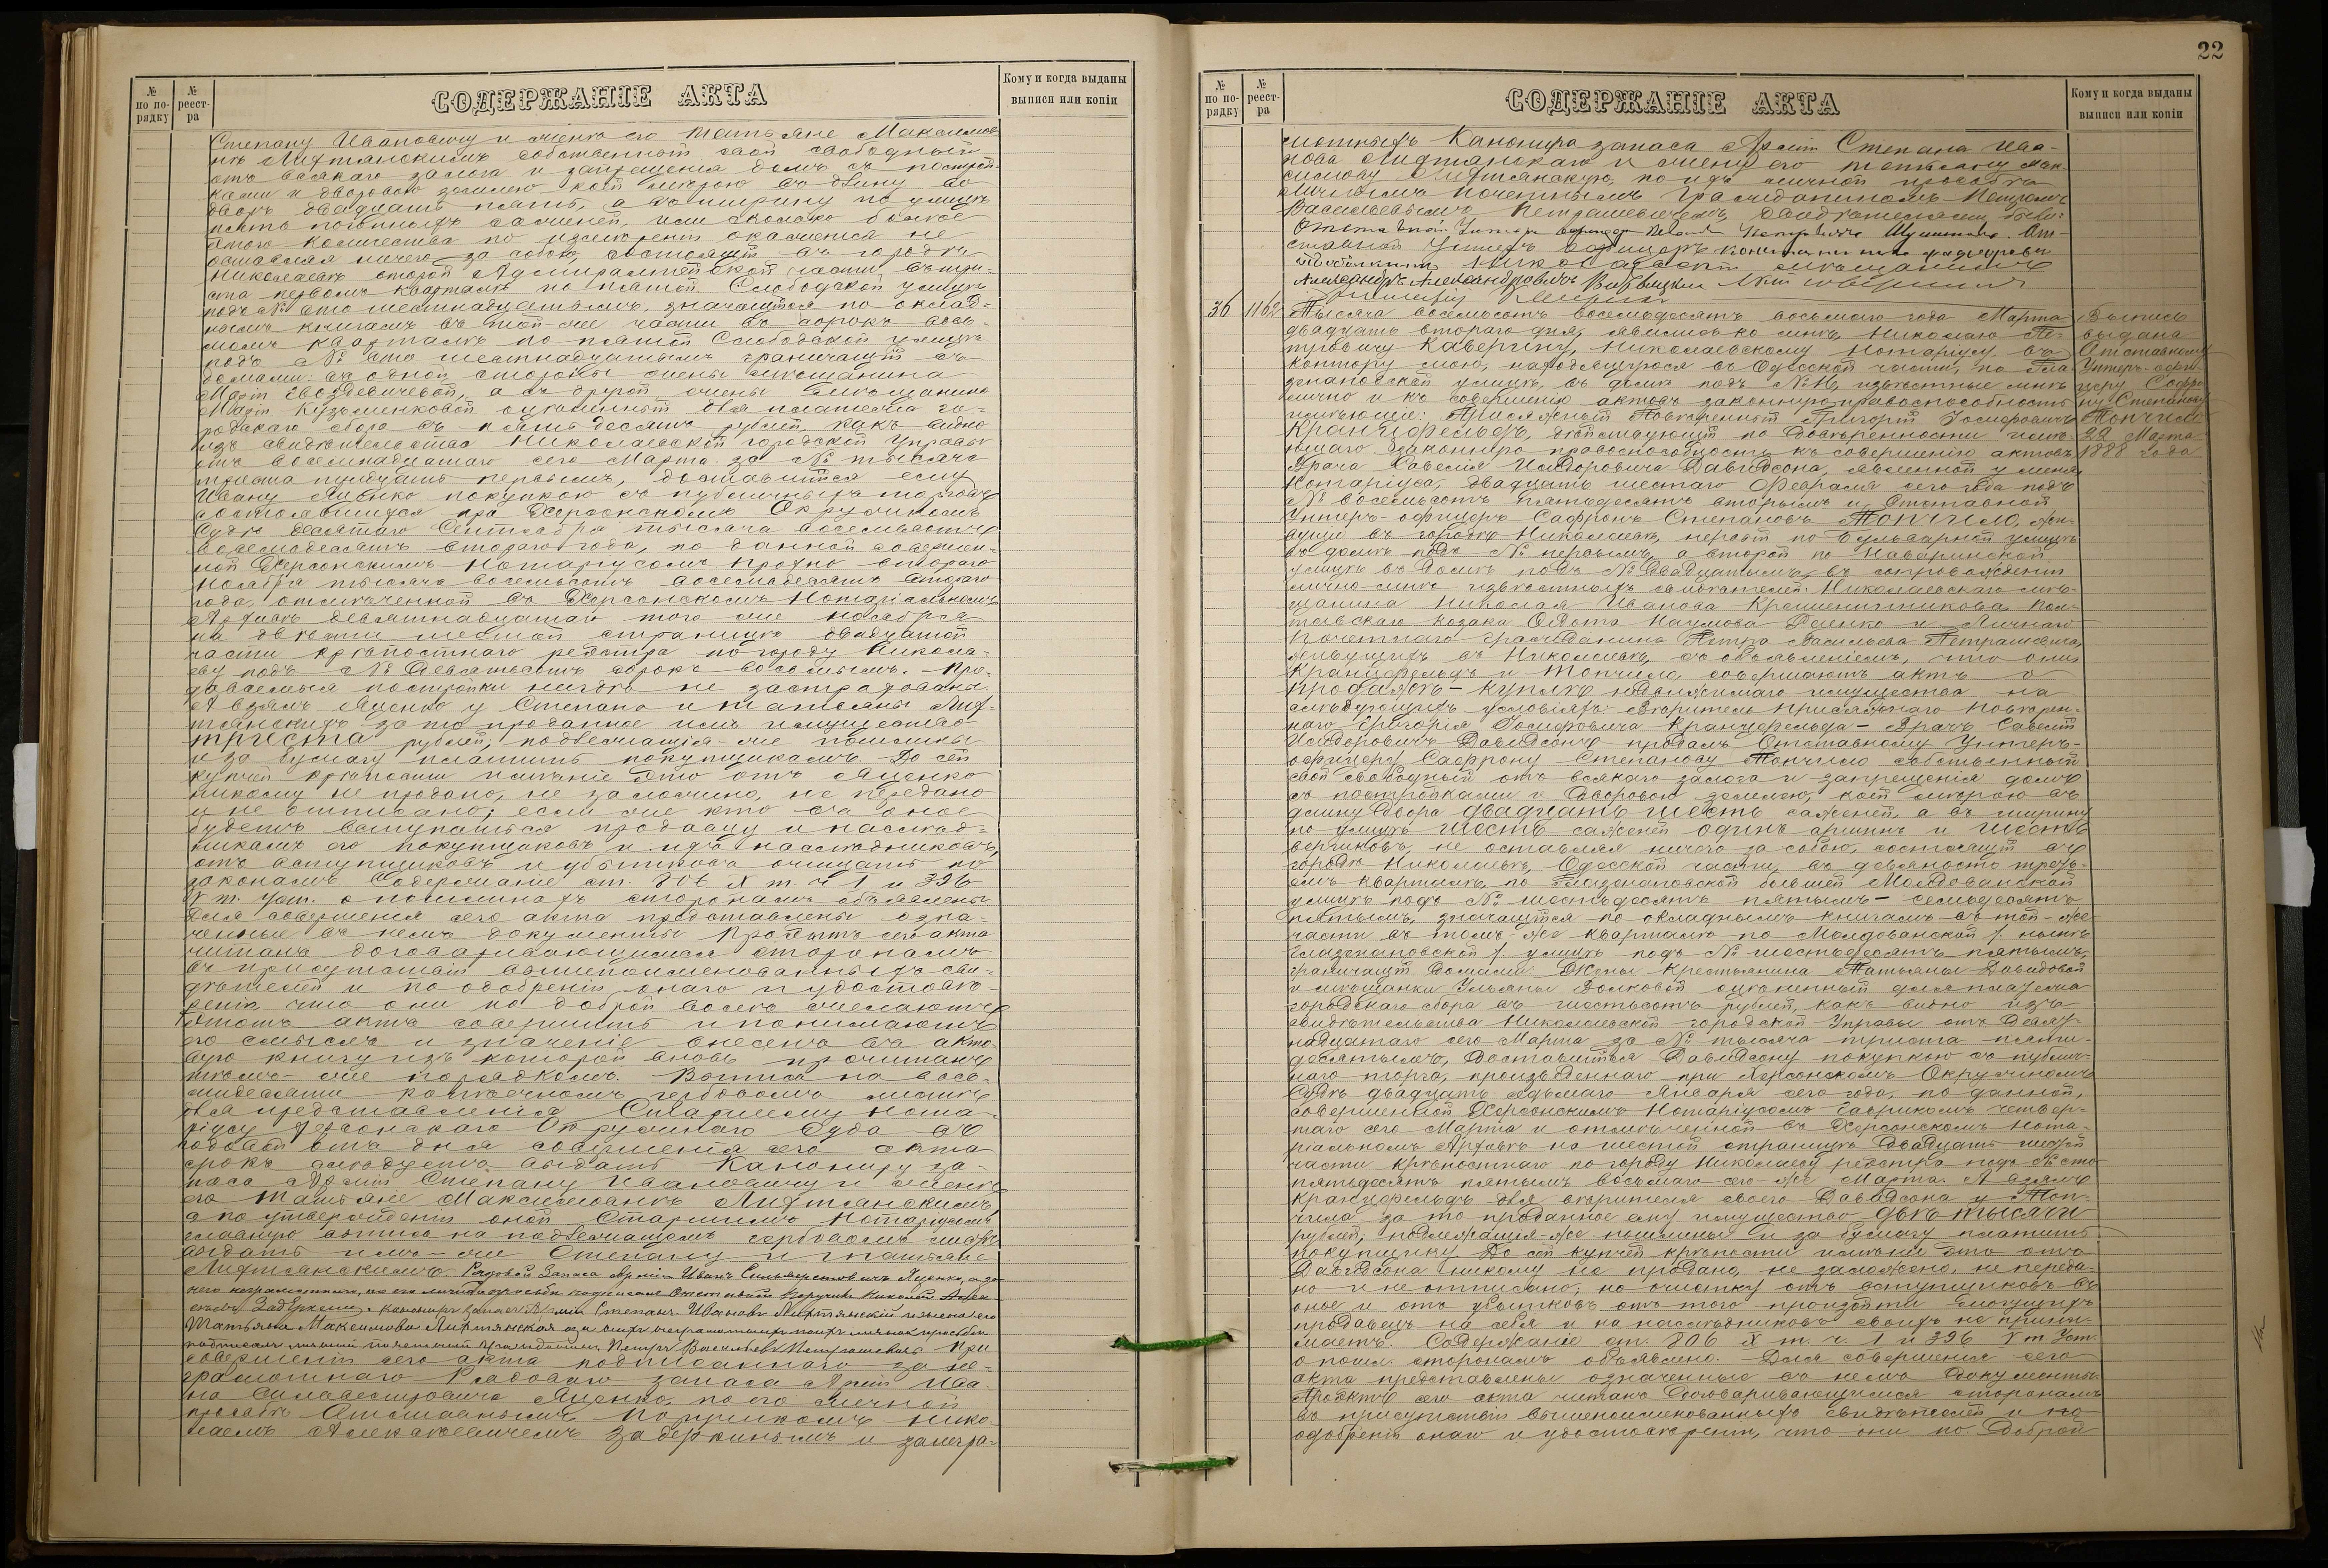 №
по по-
рядку
№
реест-
ра
СОДЕРЖАНІЕ АКТА
Кому и когда выданы
выписи или копіи
Степану Ивановичу и женѣ его Татьяне Максимов
нѣ Лифтянскимъ собственный свой свободный
отъ всякаго залога и запрещенія домъ съ построй-
ками и дворовою землею коей мѣрою въ длину во
дворъ двадцать пять, а въ ширину по улицѣ
пять погонныхъ саженей, или сколько болѣе
этого количества по измѣренію окажется не
оставляя ничего за собою, состоящій въ городѣ
Николаевѣ второй Адмиралтейской части, въ три-
ста первомъ кварталѣ по пятой Слободской улицѣ
подъ № сто шестнадцатымъ, значащійся по оклад-
нымъ книгамъ въ той-же части въ сорокъ вось-
момъ кварталѣ по пятой Слободской улицѣ
подъ № сто шестнадцатымъ граничащій съ
домами: съ одной стороны жены мѣщанина
Маріи Гвоздевичевой, а съ другой жены мѣщанина
Маріи Кузьменковой оцѣненный для платежа го-
родскаго сбора въ пятьдесятъ рублей, какъ видно
изъ свидѣтельства Николаевской городской Управы
отъ восемнадцатаго сего Марта за № тысяча
триста тридцать первымъ, доставшійся ему
Ивану Яценко покупкою съ публичныхъ торговъ
состоявшихся при Херсонскомъ Окружномъ
Судѣ десятаго Сентября тысяча восемьсотъ
восемьдесятъ втораго года, по данной совершен-
ной Херсонскимъ Нотаріусомъ Прохно втораго
Ноября тысяча восемьсотъ восемьдесятъ втораго
года, отмѣченной въ Херсонскомъ Нотаріальномъ
Архивѣ девятнадцатаго того же ноября
на двѣсти шестой страницѣ двадцатой
части крѣпостнаго реестра по городу Никола-
еву подъ № девятьсотъ сорокъ восьмымъ. Про-
даваемыя постройки нигдѣ не застрахованы.
А взялъ Яценко у Степана и Татьяны Лиф-
тянскихъ за то проданное имъ имущество
триста рублей, подлежащія-же пошлины
и за бумагу платить покупщикамъ. До сей
купчей крѣпости имѣніе это отъ Яценко
никому не продано, не заложено, не передано
и не отписано; если же кто въ оное
будетъ вступаться продавцу и наслѣд-
никамъ его покупщиковъ и ихъ наслѣдниковъ,
отъ вступщиковъ и убытковъ очищать по
законамъ. Содержаніе ст. 206 X т. ч 1 и 326
V т. уст. о пошлинахъ сторонамъ объявлены
Для совершенія сего акта представлены озна-
ченные въ немъ документы. Проэктъ сего акта
читанъ договаривающимся сторонамъ
въ присутствіи вышепоименованныхъ сви-
дѣтелей и по одобреніи онаго и удостовѣ-
реніи, что они по доброй волѣ желаютъ
этотъ актъ совершить и понимаютъ
его смыслъ и значеніе внесенъ въ акто-
вую книгу изъ которой вновь прочитанъ
тѣмъ-же порядкомъ. Выпись на вось-
мидесяти копѣечномъ гербовомъ листѣ
для представленія Старшему Нота-
ріусу Херсонскаго Окружнаго Суда въ
годовой отъ дня совершенія сего акта
срокъ слѣдуетъ выдать Канониру за-
паса Арміи Степану Ивановичу и женѣ
его Татьяне Максимовнѣ Лифтянскимъ,
а по утвержденіи оной Старшимъ Нотаріусомъ
главную выпись на подлежащемъ гербовомъ листѣ
выдать имъ-же Степану и Татьяне
Лифтянскимъ. Рядовой Запаса Арміи Иванъ Сильверстовичъ Яценко, а за
него неграмотнаго, по его личной просьбѣ подписался Отставной Поручикъ Николай Алек-
сѣевъ Задеркинъ. Канониръ запаса Арміи Степанъ Ивановъ Лифтянскій и жена его
Татьяна Максимова Лифтянская а за нихъ неграмотныхъ по ихъ личной просьбѣ
подписалъ личный почетный гражданинъ Петръ Васильевъ Петрашевичъ. При
совершеніи сего акта подписаннаго за не-
грамотнаго Рядоваго запаса Арміи Ива-
на Сильвестровича Яценко, по его личной
просьбѣ Отставнымъ Поручикомъ Нико-
лаемъ Алексѣевичемъ Задеркинымъ и за негра-
22
№
по по-
рядку
№
реест-
ра
СОДЕРЖАНІЕ АКТА
Кому и когда выданы
выписи или копіи
мотныхъ Канонира запаса Арміи Степана Ива-
нова Лифтянскаго и жену его Татьяну Мак-
симову Лифтянскую, по ихъ личной просьбѣ
Личнымъ Почетнымъ Гражданиномъ Петромъ
Васильевичемъ Петрашевичемъ, свидѣтелями были:
Отставной Унтеръ офицеръ От-
ставной Унтеръ офицеръ
Николаевскій мѣщанинъ
Александръ Александровичъ
36 1162 Тысяча восемьсотъ восемьдесятъ восьмаго года Марта
двадцать втораго дня, явились ко мнѣ, Николаю Пе-
тровичу Каверину, Николаевскому Нотаріусу въ
контору мою, находящуюся въ Одесской части, по Гла-
зенаповской улицѣ, въ домѣ подъ №16, извѣстные мнѣ
лично и къ совершенію актовъ законную правоспособность
имѣющіе: Присяжный Повѣренный Григорій Іосифовичъ
Кранцфельдъ, дѣйствующій по довѣренности имѣ-
ющаго законную правоспособность къ совершенію актовъ
Врача Савелія Исидоровича Давидсона, явленной у меня
Нотаріуса, двадцать шестаго Февраля сего года подъ
№ восемьсотъ пятьдесятъ вторымъ и Отставной
Унтеръ-офицеръ Сафронъ Степановъ Топчило, жи-
вущіе въ городѣ Николаевѣ, первый по Бульварной улицѣ
въ домѣ подъ № первымъ, а второй по Наваринской
улицѣ въ домѣ подъ № двадцатымъ, въ сопровожденіи
лично мнѣ извѣстныхъ свидѣтелей: Николаевскаго мѣ-
щанина Николая Иванова Крашенинникова, Пол-
тавскаго Козака Ѳедота Наумова Даенко и Личнаго
Почетнаго гражданина Петра Васильева Петрашевича,
живущихъ въ Николаевѣ, съ объявленіемъ, что они
Кранцфельдъ и Топчило, совершаютъ актъ о
продажѣ-куплѣ недвижимаго имущества на
слѣдующихъ условіяхъ: Вѣритель Присяжнаго Повѣрен-
наго Григорія Іосифовича Кранцфельда - Врачъ Савелій
Исидоровичъ Давидсонъ продалъ Отставному Унтеръ-
офицеру Сафрону Степанову Топчило собственный
свой свободный отъ всякаго залога и запрещенія домъ
съ постройками и дворовою землею, коей мѣрою въ
длину двора двадцать шесть саженей, а въ ширину
по улицѣ шесть саженей одинъ аршинъ и шесть
вершковъ, не оставляя ничего за собою, состоящій въ
городѣ Николаевѣ, Одесской части, въ девяносто треть-
емъ кварталѣ, по Глазенаповской бывшей Молдованской
улицѣ подъ № шестьдесятъ пятымъ - семьдесятъ
пятымъ, значащійся по окладнымъ книгамъ въ той-же
части въ томъ-же кварталѣ по Молдованской /. нынѣ
Глазенаповской /. улицѣ подъ № шестьдесятъ пятымъ,
граничащій домами: Жены Крестьянина Татьяны Давидовой
и мѣщанки Ульяны Волковой оцѣненный для платежа
городскаго сбора въ шестьсотъ рублей, какъ видно изъ
свидѣтельства Николаевской городской Управы отъ девят-
надцатаго сего Марта за № тысяча триста пяти-
десятымъ, доставшійся Давидсону покупкою съ публич-
наго торга, произведеннаго при Херсонскомъ Окружномъ
Судѣ двадцать седьмаго Января сего года, по данной,
совершенной Херсонскимъ Нотаріусомъ Гавриковъ четвер-
таго сего Марта и отмѣченной въ Херсонскомъ Нота-
ріальномъ Архивѣ на шестой страницѣ двадцать шестой
части крѣпостнаго по городу Николаеву реестра подъ № сто
пятьдесятъ пятымъ восьмаго сего-же Марта. А взялъ
Кранцфельдъ для вѣрителя своего Давидсона у Топ-
чила за то проданное ему имущество двѣ тысячи
рублей, подлежащія-же пошлины и за бумагу платить
покупщику. До сей купчей крѣпости имѣніе это отъ
Давидсона никому не продано, не заложено, не переда-
но и не отписано, но очистку отъ вступщиковъ въ
оное и отъ убытковъ отъ того произойти могущихъ
продавецъ на себя и на наслѣдниковъ своихъ не прини-
маетъ. Содержаніе ст. 206 X т. ч. 1 и 326 V т Уст.
о пошл. сторонамъ объявлено. Для совершенія сего
акта представлены означенные въ немъ документы.
Проэктъ сего акта читанъ Договаривающимся сторонамъ
въ присутствіи вышепоименованныхъ свидѣтелей и по
одобреніи онаго и удостовѣреніи, что они по доброй
Выпись
выдана
Отставному
Унтеръ-офи-
церу Сафро-
ну Степанову
Топчило
22 Марта
1888 года